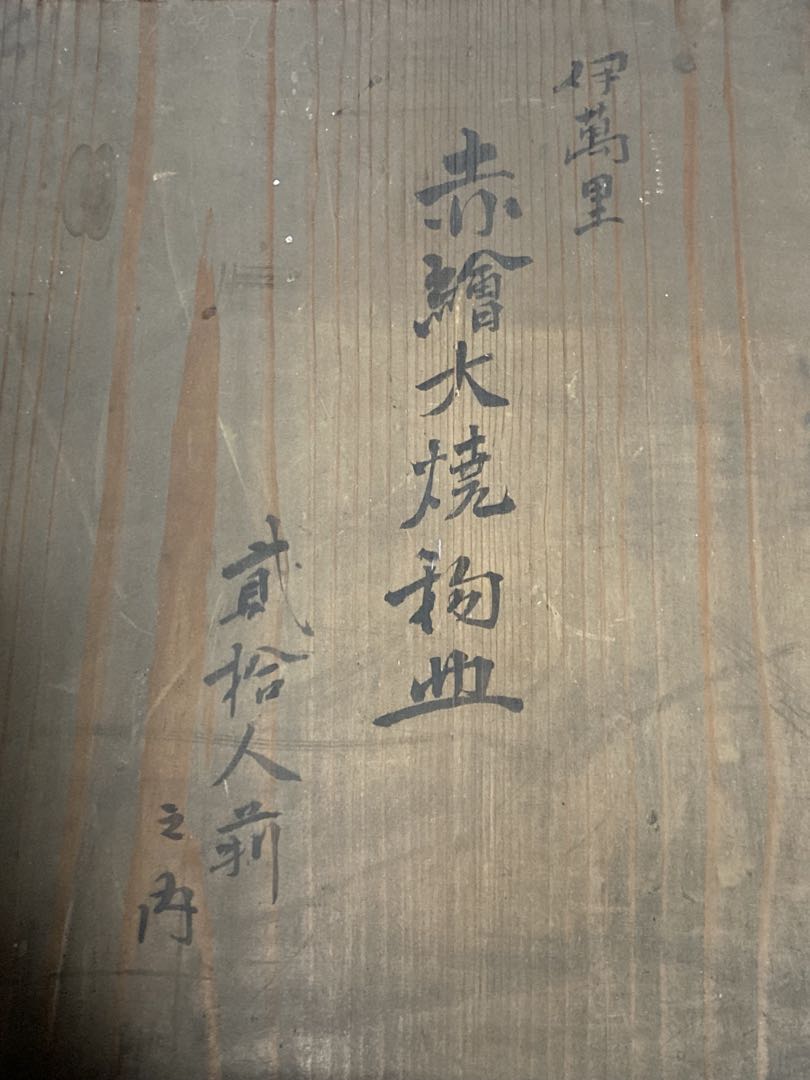 伊萬里
赤繪大焼物皿
貳拾人前
之内